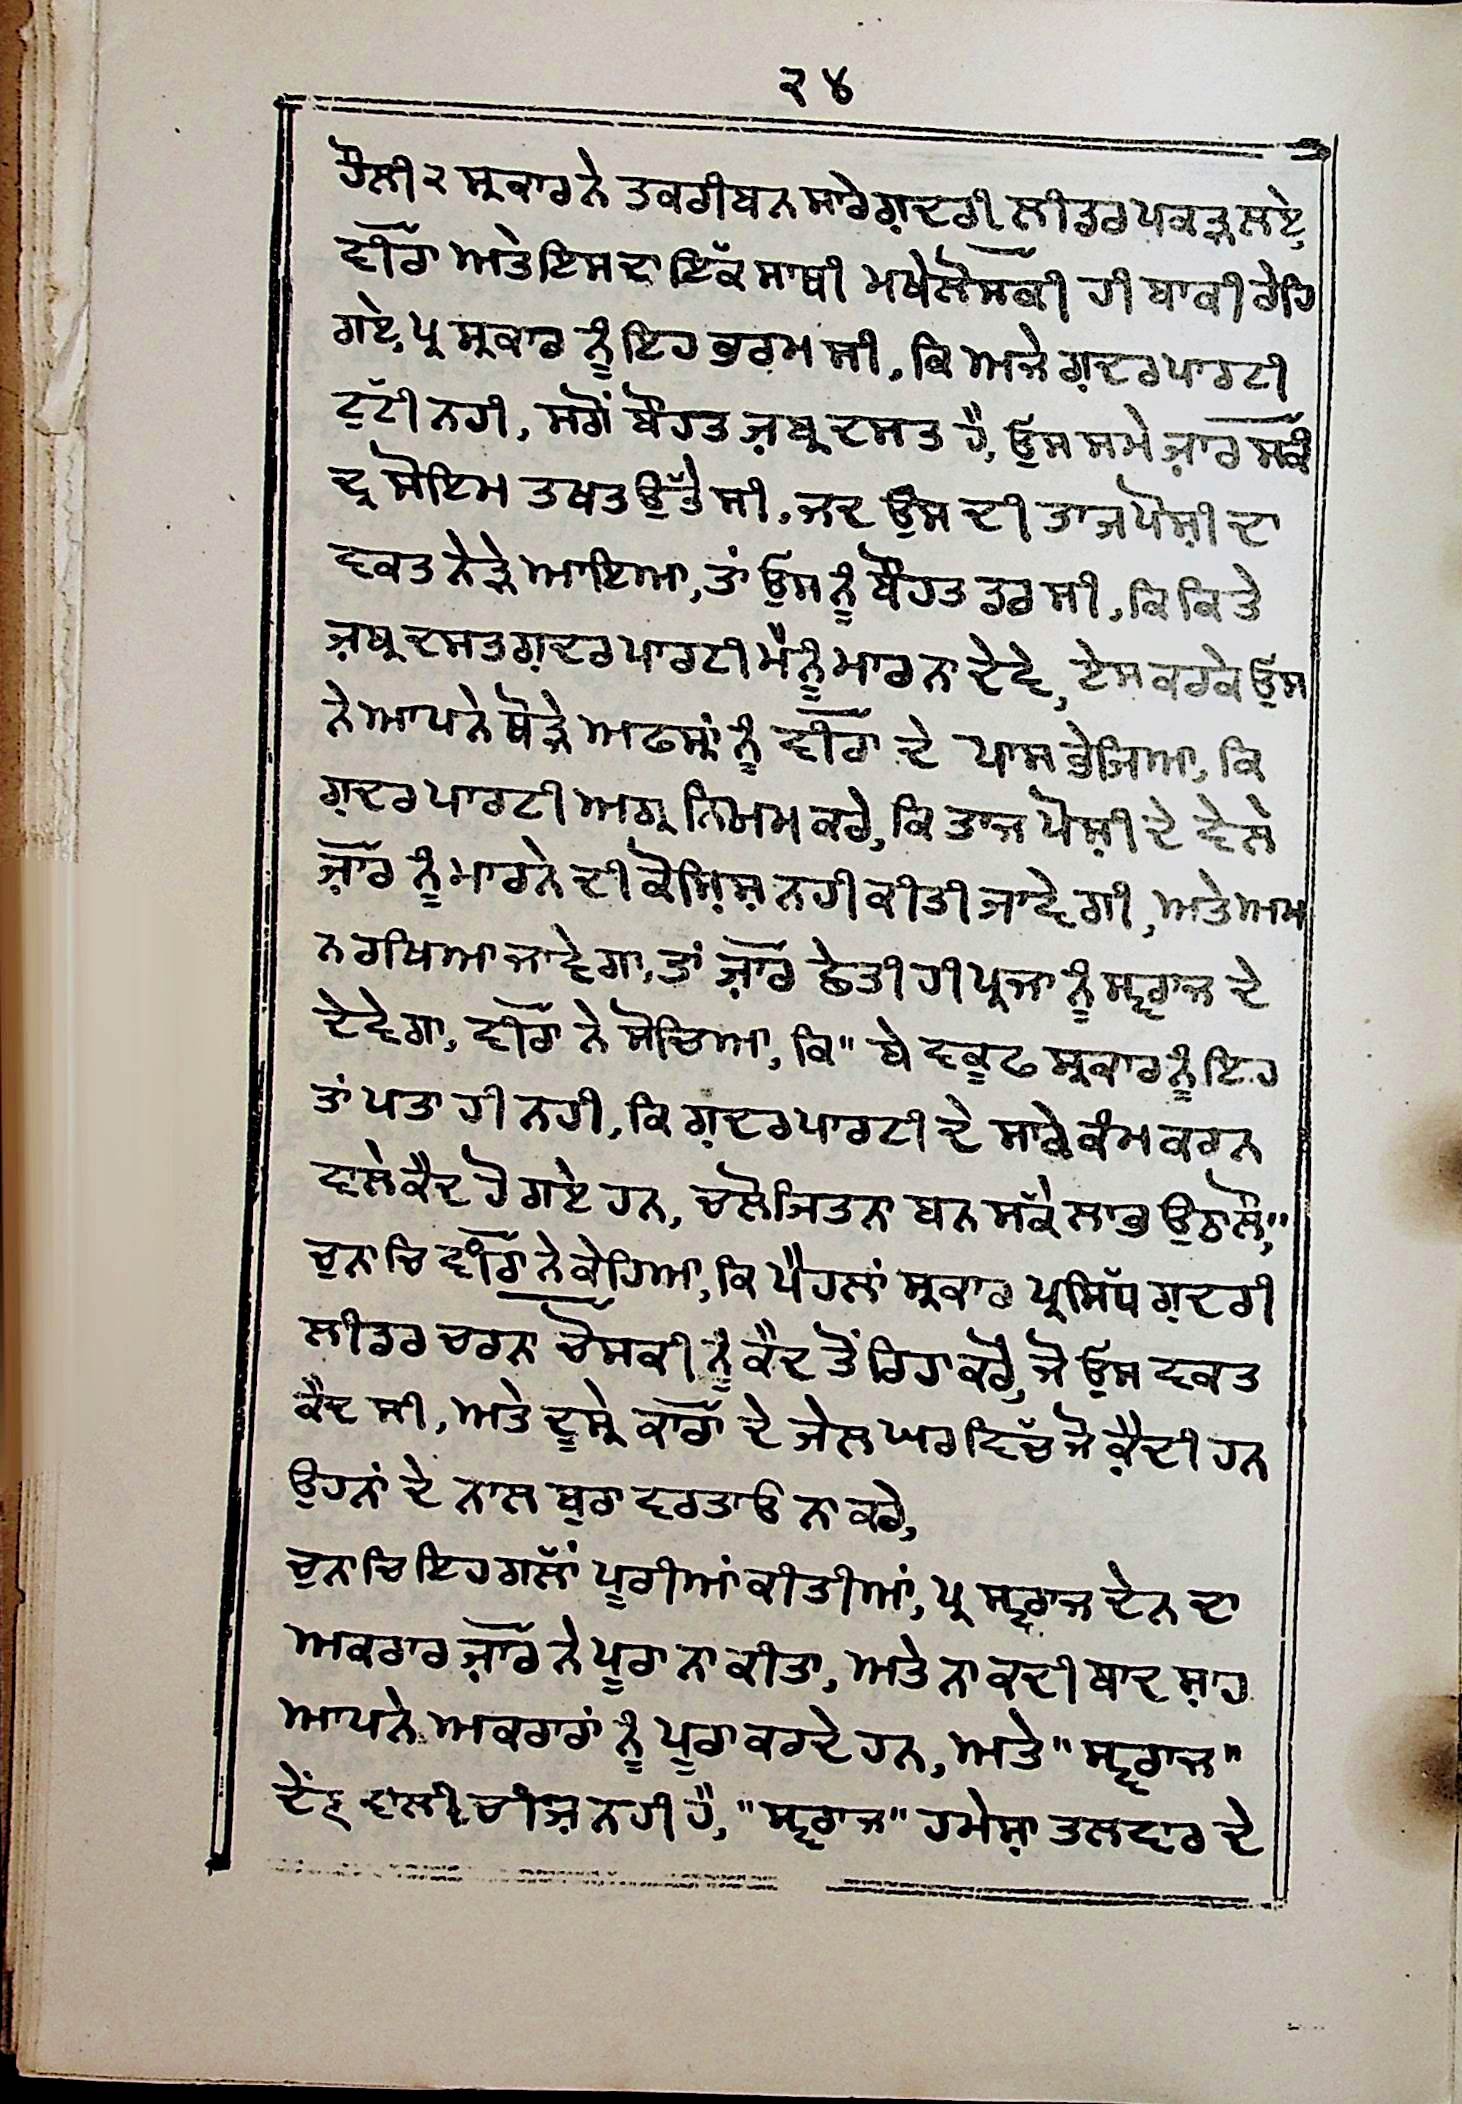 ੨੪
ਹੌਲੀ ੨ ਸ੍ਰਕਾਰ ਨੇ ਤਕਰੀਬਨ ਸਾਰੇ ਗ਼ਦਰੀ ਲੀਡਰ ਪਕੜ ਲਏ,
ਵੀਰਾ ਅਤੇ ਇਸ ਦਾ ਇੱਕ ਸਾਥੀ ਮਖੇਲੋਸਕੀ ਹੀ ਬਾਕੀ ਰੇਹਿ
ਗਏ, ਪ੍ਰ ਸ੍ਰਕਾਰ ਨੂੰ ਇਹ ਭਰਮ ਸੀ, ਕਿ ਅਜੇ ਗ਼ਦਰ ਪਾਰਟੀ
ਟੁੱਟੀ ਨਹੀ, ਸਗੋਂ ਬੌਹਤ ਜ਼ਬ੍ਰਦਸਤ ਹੈ, ਉਸ ਸਮੇ ਜ਼ਾਰ ਸਕੰ
ਦ੍ਰ ਸੋਇਮ ਤਖਤ ਉੱਤੇ ਸੀ, ਜਦ ਉਸ ਦੀ ਤਾਜਪੋਸ਼ੀ ਦਾ
ਵਕਤ ਨੇੜੇ ਆਇਆ, ਤਾਂ ਉਸ ਨੂੰ ਬੌਹਤ ਡਰ ਸੀ, ਕਿ ਕਿਤੇ
ਜ਼ਬ੍ਰਦਸਤ ਗ਼ਦਰ ਪਾਰਟੀ ਮੈਨੂੰ ਮਾਰ ਨਾ ਦੇਵੇ, ਏਸ ਕਰਕੇ ਉਸ
ਨੇ ਆਪਨੇ ਥੋੜੇ ਅਫਸ੍ਰਾਂ ਨੂੰ ਵੀਰਾ ਦੇ ਪਾਸ ਭੇਜਿਆ, ਕਿ
ਗ਼ਦਰ ਪਾਰਟੀ ਅਗ੍ਰ ਨਿਯਮ ਕਰੇ, ਕਿ ਤਾਜ ਪੋਸ਼ੀ ਦੇ ਵੇਲੇ
ਜ਼ਾਰ ਨੂੰ ਮਾਰਨੇ ਦੀ ਕੋਸ਼ਿਸ਼ ਨਹੀ ਕੀਤੀ ਜਾਵੇਗੀ, ਅਤੇ ਅਮ
ਨ ਰਖਿਆ ਜਾਵੇਗਾ, ਤਾਂ ਜ਼ਾਰ ਛੇਤੀ ਹੀ ਪ੍ਰਜਾ ਨੂੰ ਸ੍ਵਰਾਜ ਦੇ
ਦੇਵੇਗਾ, ਵੀਰਾ ਨੇ ਸੋਚਿਆ, ਕਿ "ਬੇ ਵਕੂਫ ਸ੍ਰਕਾਰ ਨੂੰ ਇਹ
ਤਾਂ ਪਤਾ ਹੀ ਨਹੀ, ਕਿ ਗ਼ਦਰ ਪਾਰਟੀ ਦੇ ਸਾਰੇ ਕੰਮ ਕਰਨ
ਵਾਲੇ ਕੈਦ ਹੋ ਗਏ ਹਨ, ਚਲੋ ਜਿਤਨਾ ਬਨ ਸੱਕੇ ਲਾਭ ਉਠਾਲੌ,"
ਚੁਨਾਚਿ ਵੀਰਾ ਨੇ ਕੇਹਿਆ, ਕਿ ਪੈਹਲਾਂ ਸ੍ਰਕਾਰ ਪ੍ਰਸਿੱਧ ਗ਼ਦਰੀ
ਲੀਡਰ ਚਰਨ ਚੋਸਕੀ ਨੂੰ ਕੈਦ ਤੋਂ ਰਿਹਾ ਕਰੇ, ਜੋ ਉਸ ਵਕਤ
ਕੈਦ ਸੀ, ਅਤੇ ਦੂਸ੍ਰੇ ਕਾਰਾ ਦੇ ਜੇਲ ਘਰ ਵਿੱਚ ਜੋ ਕ਼ੈਦੀ ਹਨ
ਉਹਨਾਂ ਦੇ ਨਾਲ ਬੁਰਾ ਵਰਤਾਓ ਨਾ ਕਰੇ,
ਚੁਨਾਚਿ ਇਹ ਗਲਾਂ ਪੂਰੀਆਂ ਕੀਤੀਆਂ, ਪ੍ਰ ਸ੍ਵਰਾਜ ਦੇਨ ਦਾ
ਅਕਰਾਰ ਜ਼ਾਰ ਨੇ ਪੂਰਾ ਨਾ ਕੀਤਾ, ਅਤੇ ਨਾ ਕਦੀ ਬਾਦਸ਼ਾਹ
ਆਪਨੇ ਅਕਰਾਰਾਂ ਨੂੰ ਪੂਰਾ ਕਰਦੇ ਹਨ, ਅਤੇ "ਸ੍ਵਰਾਜ"
ਦੇਂਣ ਵਾਲੀ ਚੀਜ਼ ਨਹੀ ਹੈ, "ਸ੍ਵਰਾਜ" ਹਮੇਸ਼ਾ ਤਲਵਾਰ ਦੇ